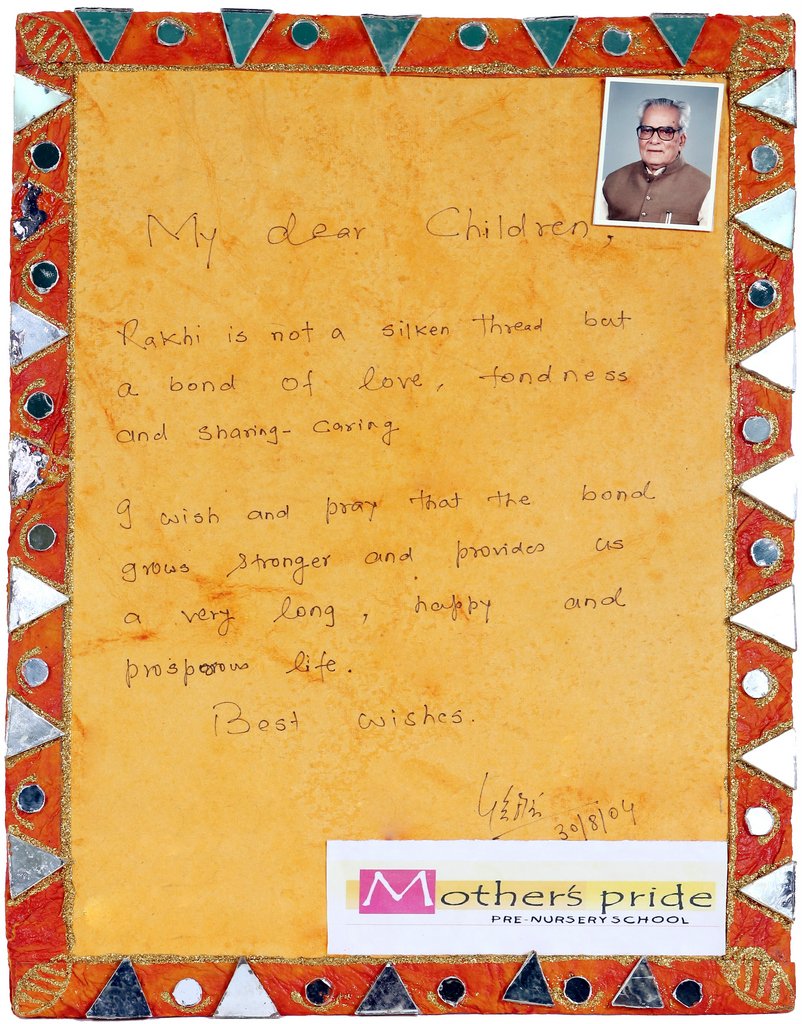 My dear Children,
Rakhi is not a silken thread but
a bond of love, fondness
and sharing- caring
I wish and pray that the bond
grows stronger and provides us
a very long, happy and
prosperous life.
Best wishes.
30/8/04
Mother's pride
PRE-NURSERY SCHOOL